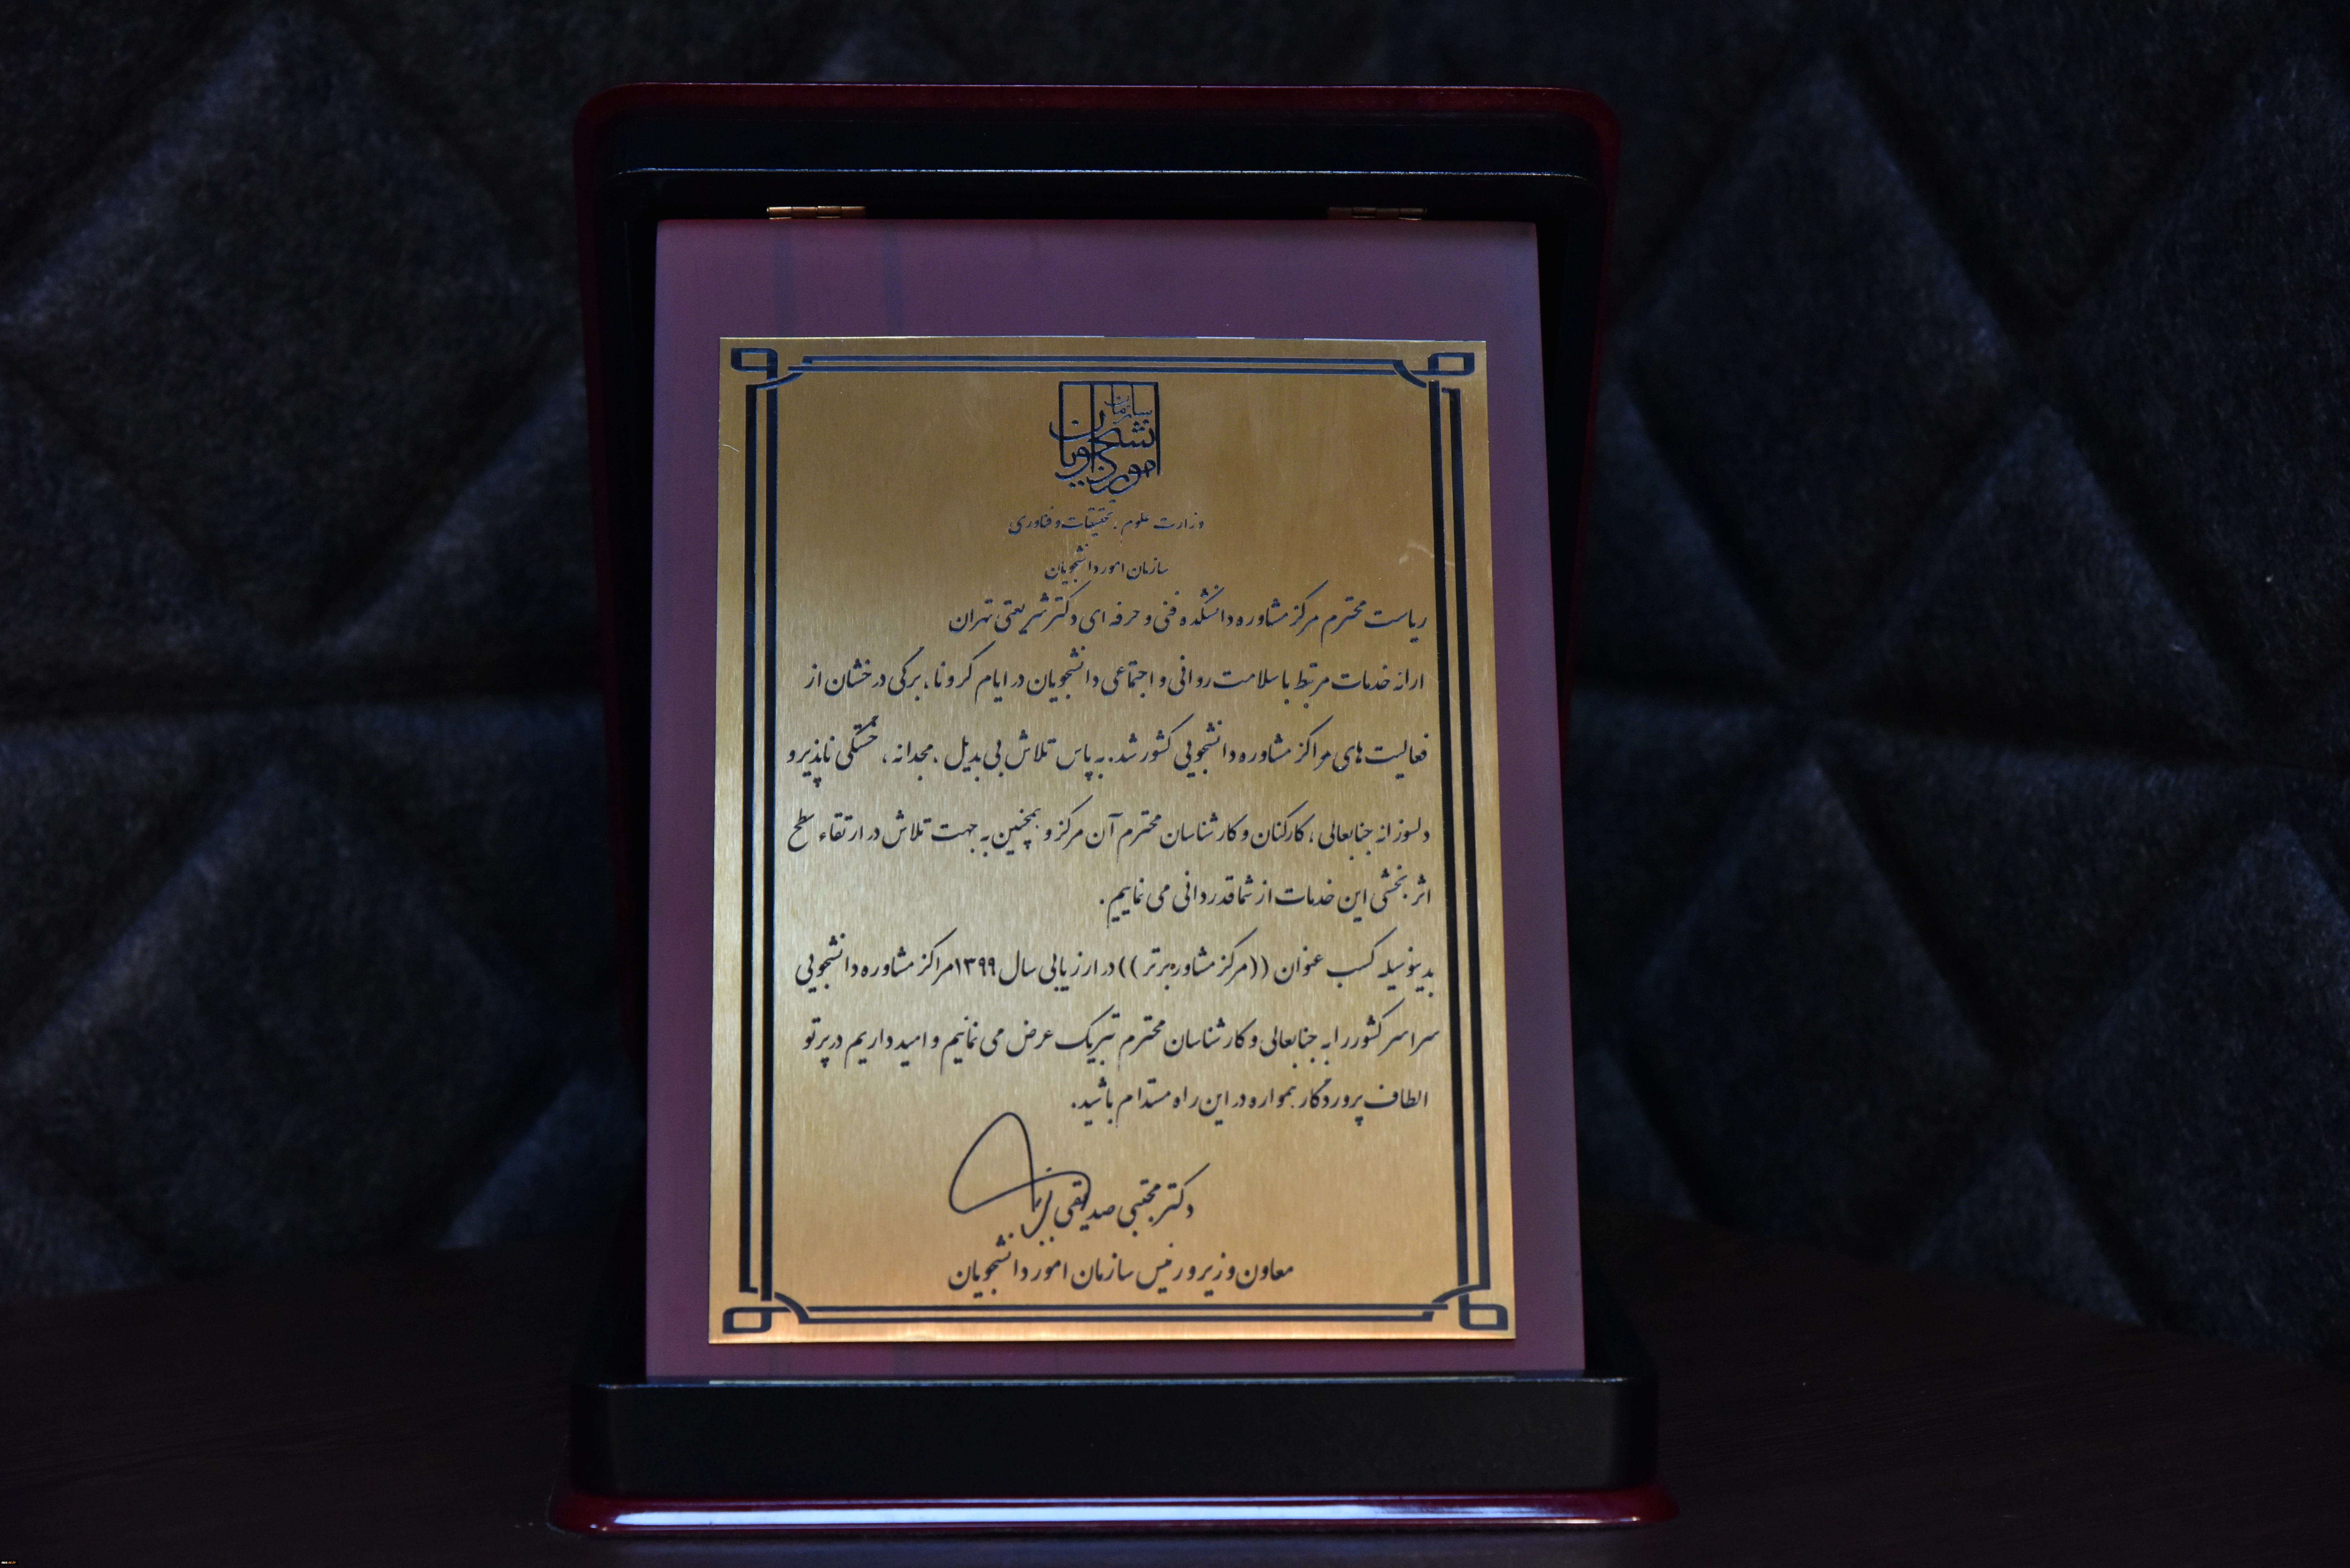 سازمان
امور دانشجویان
وزارت علوم، تحقیقات و فناوری
سازمان امور دانشجویان
ریاست محترم مرکز مشاوره دانشکده فنی و حرفه ای دکتر شریعتی تهران
ارائه خدمات مرتبط با سلامت روانی و اجتماعی دانشجویان در ایام کرونا، برگی درخشان از
فعالیت های مراکز مشاوره دانشجویی کشور شد. به پاس تلاش بی بدیل، مجدانه، خستگی ناپذیر و
دلسوزانه جنابعالی، کارکنان و کارشناسان محترم آن مرکز و همچنین به جهت تلاش در ارتقاء سطح
اثر بخشی این خدمات از شما قدردانی می نماییم.
بدینوسیله کسب عنوان ((مرکز مشاوره برتر)) در ارزیابی سال ۱۳۹۹ مراکز مشاوره دانشجویی
سراسر کشور را به جنابعالی و کارشناسان محترم تبریک عرض می نمائیم و امید داریم در پرتو
الطاف پروردگار همواره در این راه مستدام باشید.
دکتر مجتبی صدیقی
معاون وزیر و رئیس سازمان امور دانشجویان